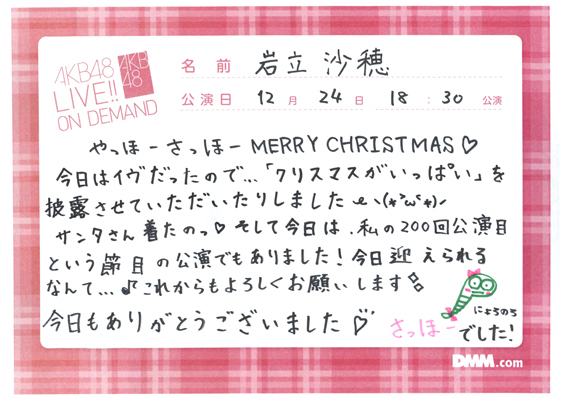 AKB48
LIVE!!
ON DEMAND
AKB
48
名前 岩立 沙穂
公演日 12月 24日 18:30 公演
やっほーさっほー MERRY CHRISTMAS♡
今日はイヴだったので…「クリスマスがいっぱい」を
披露させていただいたりしました
サンタさん着たのっ♡ そして今日は、私の200回公演目
という節目の公演でもありました!今日迎えられる
なんて…♪これからもよろしくお願いします
今日もありがとうございました♡
にょろのろ
さっほーでした!
DMM.com